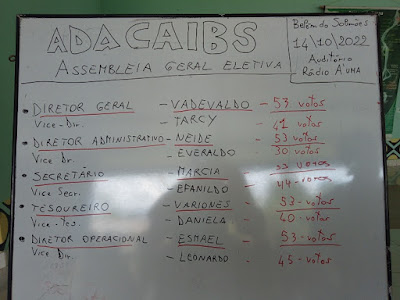 ADACAIBS
ASSEMBLEIA GERAL ELETIVA
Belém do Solimões
14|10|2022
Auditório
Rádio A'UMA
• DIRETOR GERAL - VADEVALDO - 53 votos
Vice-Dir. - TARCY - 41 votos
• DIRETOR ADMINISTRATIVO - NEIDE - 53 votos
Vice Dr. - EVERALDO - 30 votos
• SECRETÁRIO - MARCIA - votos
Vice Secr. - EPANILDO - 44 - votos
• TESOUREIRO - VARIONES - 53 - votos
Vice-Tes. - DANIELA - 40 - votos
• DIRETOR OPERACIONAL - ESMAEL - 53 - votos
Vice Dir. - LEONARDO - 45 - votos